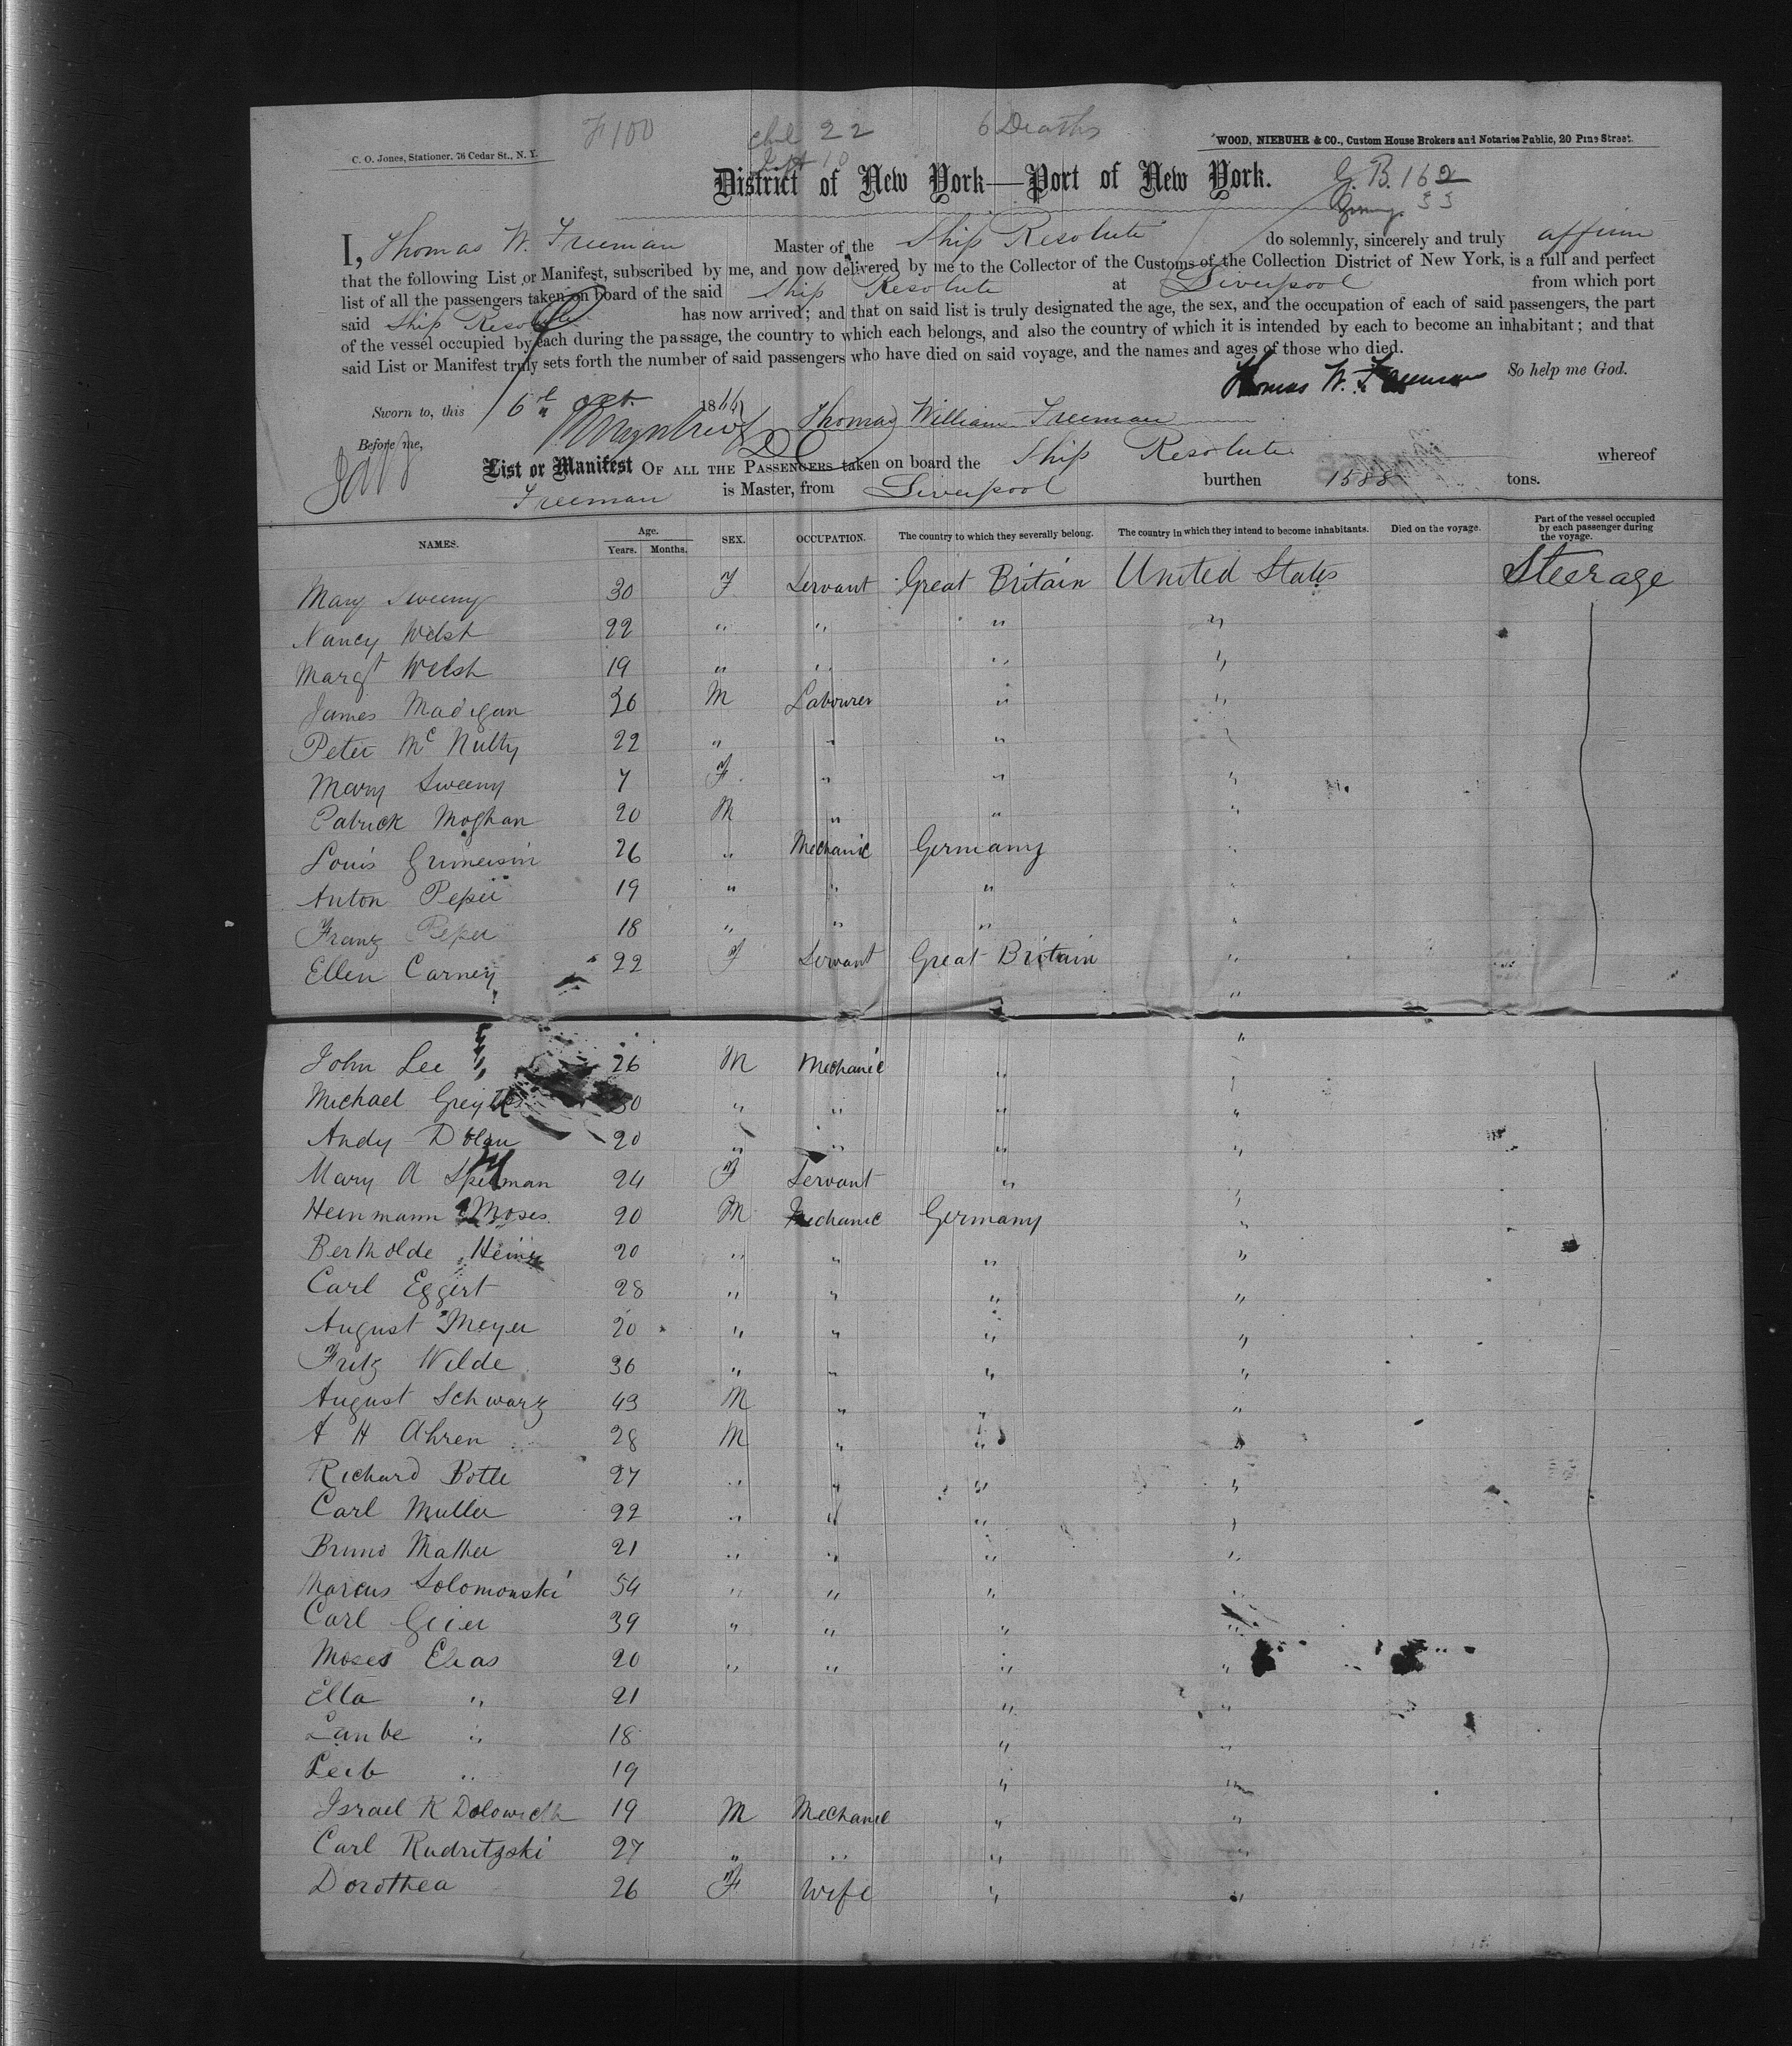 F 100
22
6 Deaths
C. O. Jones, Stationer, 76 Cedar St., N. Y.
WOOD, NIEBUHR & CO., Custom House Brokers and Notaries Public, 20 Pine Street.
District of New York—Port of New York.
G. B. 162
33
I, Thomas W. Freeman Master of the Ship Resolute do solemnly, sincerely and truly affirm
that the following List or Manifest, subscribed by me, and now delivered by me to the Collector of the Customs of the Collection District of New York, is a full and perfect
list of all the passengers taken on board of the said Ship Resolute at Liverpool from which port
said Ship Resolute has now arrived; and that on said list is truly designated the age, the sex, and the occupation of each of said passengers, the part
of the vessel occupied by each during the passage, the country to which each belongs, and also the country of which it is intended by each to become an inhabitant; and that
said List or Manifest truly sets forth the number of said passengers who have died on said voyage, and the names and ages of those who died.
Thomas W. Freeman So help me God.
Sworn to, this 6th Oct. 1866
Thomas William Freeman
Before me,
List or Manifest OF ALL THE PASSENGERS taken on board the Ship Resolute whereof
Freeman is Master, from Liverpool burthen 1588 tons.
NAMES. Age. Years. Months. SEX. OCCUPATION. The country to which they severally belong. The country in which they intend to become inhabitants. Died on the voyage. Part of the vessel occupied by each passenger during the voyage.
Mary Sweeny 30 F Servant Great Britain United States Steerage
Nancy Welsh 22 " " " "
Margt Welsh 19 " " " "
James Madigan 36 M Labourer " "
Peter McNulty 22 " " "
Mary Sweeny 7 F " " "
Patrick Moghan 20 M " " "
Louis 26 " Mechanic Germany "
Anton Peper 19 " " " "
Franz Peper 18 " " " "
Ellen Carney 22 F Servant Great Britain "
"
John Lee 26 M Mechanic " "
Michael 30 " " " "
Andy Dolan 20 " " " "
Mary A Spelman 24 F Servant " "
Heinmann Moses 20 M Mechanic Germany "
Bertholde Heine 20 " " " "
Carl Eggert 28 " " " "
August Meyer 20 " " " "
Fritz Wilde 36 " " " "
August Schwarz 43 M " " "
A H Ahren 28 M " " "
Richard Botte 27 " " " "
Carl Muller 22 " " " "
Bruno Mather 21 " " " "
Marcus Solomonski 54 " " " "
Carl Geier 39 " " " "
Moses Elias 20 " " " "
Etta " 21 " "
Laube " 18 " "
Leib " 19 " "
Israel R Dolowich 19 M Mechanic " "
Carl Rudritzski 27 " " " "
Dorothea 26 F Wife " "